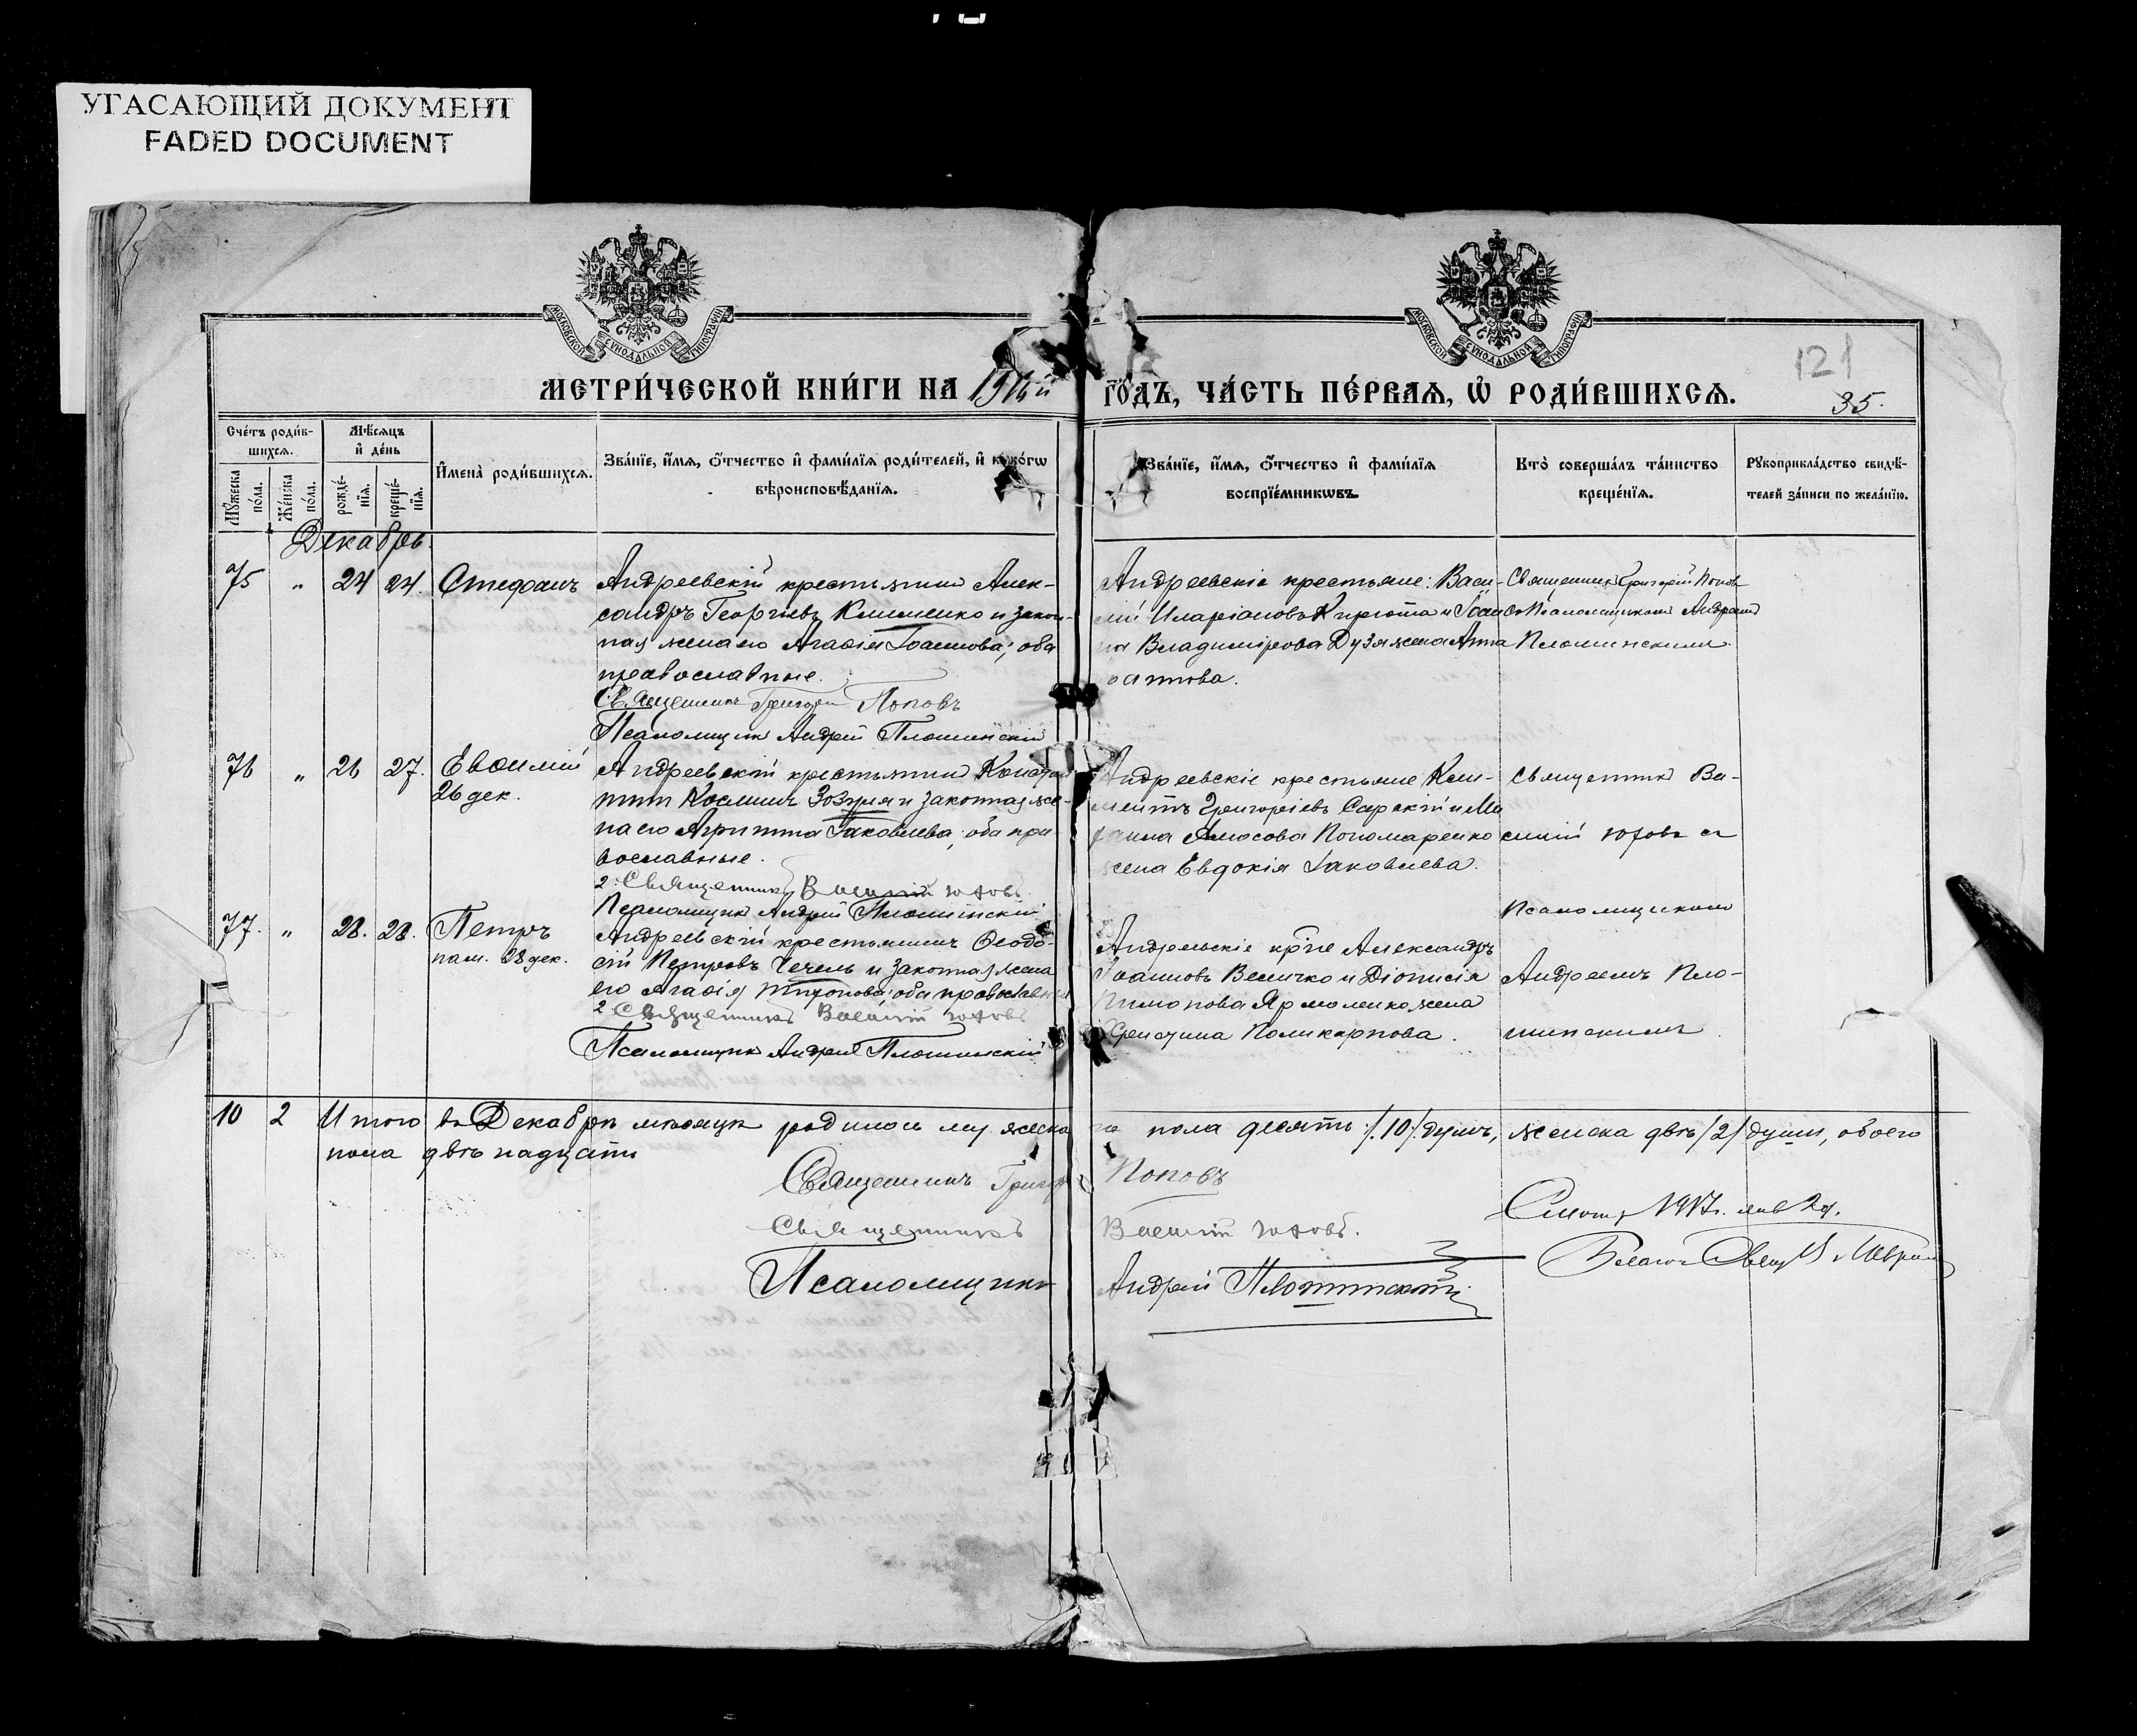 УГАСАЮЩИЙ ДОКУМЕНТ
FADED DOCUMENT
МОСКОВСКОЙ СѴНОДАЛЬНОЙ ТИПОГРАФІИ
МОСКОВСКОЙ СѴНОДАЛЬНОЙ ТИПОГРАФІИ
МЕТРИ́ЧЕСКОЙ КНИ́ГИ НА 1916й ГО́ДЪ, ЧА́СТЬ ПЕ́РВАЯ, Ѡ҆ РОДИ́ВШИХСЯ.
121
35.
Сче́тъ роди́в-
шихся.
Мꙋ́жеска по́ла.
Же́нска по́ла.
Мѣ́сяцъ
и҆ де́нь
рожде́-нїя.
креще́-нїя.
И҆мена̀ роди́вшихся.
Зва́нїе, и҆́мя, ѻ҆́тчество и҆ фами́лїя роди́телей, и҆ како́гѡ
вѣроисповѣ́данїя.
Зва́нїе, и҆́мя, ѻ҆́тчество и҆ фами́лїя
воспрїе́мникѡвъ.
Кто̀ соверша́лъ та́инство
креще́нїя.
Рꙋкоприкла́дство свидѣ́-
телей за́писи по жела́нїю.
Декабрь.
75 " 24 24. Стефанъ
Андреевскій крестьянин Алек-
сандръ Георгіевъ Клименко и закон-
ная жена его Агафія Іоаннова; оба
православные.
Священникъ Григорій Поповъ
Псаломщикъ Андрей Плошинскій
Андреевскіе крестьяне: Васи-
лій Иларіоновъ Кирюта и Іоан
на Владимірова Дузя жена Анна
Священникъ Григорій Поповъ
съ Псаломщикомъ Андреем
Плошинскимъ.
76 " 26 27. Евѳимій
26 дек.
Андреевскій крестьянин
Косминъ Зозуля и законная же-
на его Агриппина Іаковлева; оба пра-
вославные.
2. Священникъ Василій
Псаломщикъ Андрей Плошинскій
Андреевскіе крестьяне Кли-
ментъ Григоріевъ Сарскій и
Амосова Пономаренко
жена Евдокія Іаковлева.
Священник Ва-
силій съ
Псаломщикомъ
Андреемъ Пло-
шинскимъ
77. " 28. 28. Петръ
28 дек.
Андреевскій крестьянинъ Ѳеодо-
сій Петровъ Чечель и законная жена
его Агафія оба православные
2 Священникъ Василій
Псаломщикъ Андрей Плошинскій
Андреевскіе кр-не Александръ
Іоанновъ Величко и Діонисія
Ярмоленко жена
Христина Поликарпова.
10 2 Итого въ Декабрѣ мѣсяцѣ родилось мужеска
го пола десять /10/ душъ, женска двѣ /2/ души, обоего
пола двѣнадцать
Священникъ Григорій Поповъ
Священникъ Василій
Псаломщикъ Андрей Плошинскій
1917г. янв